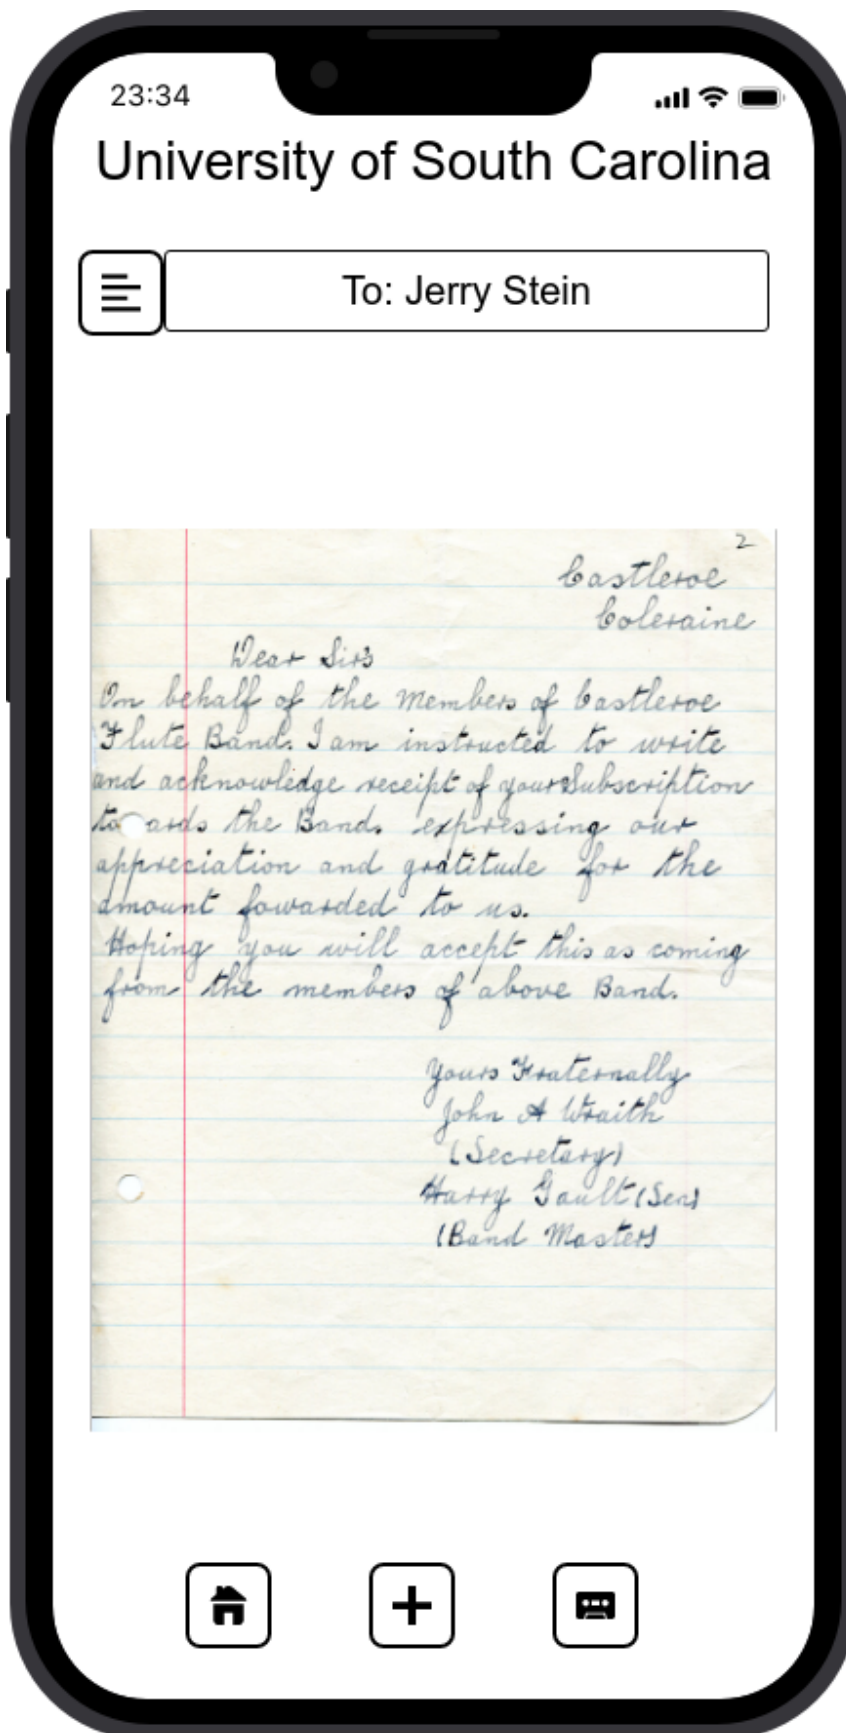 23:34
University of South Carolina
To: Jerry Stein
2
Castleroe
Coleraine
Dear Sirs
On behalf of the Members of Castleroe
Flute Band. I am instructed to write
and acknowledge receipt of your Subscription
to ards the Band. expressing our
appreciation and gratitude for the
amount fowarded to us.
Hoping you will accept this as coming
from the members of above Band.
Yours Fraternally
John A Wraith
(Secretary)
Harry Gault (Sen)
(Band Master)